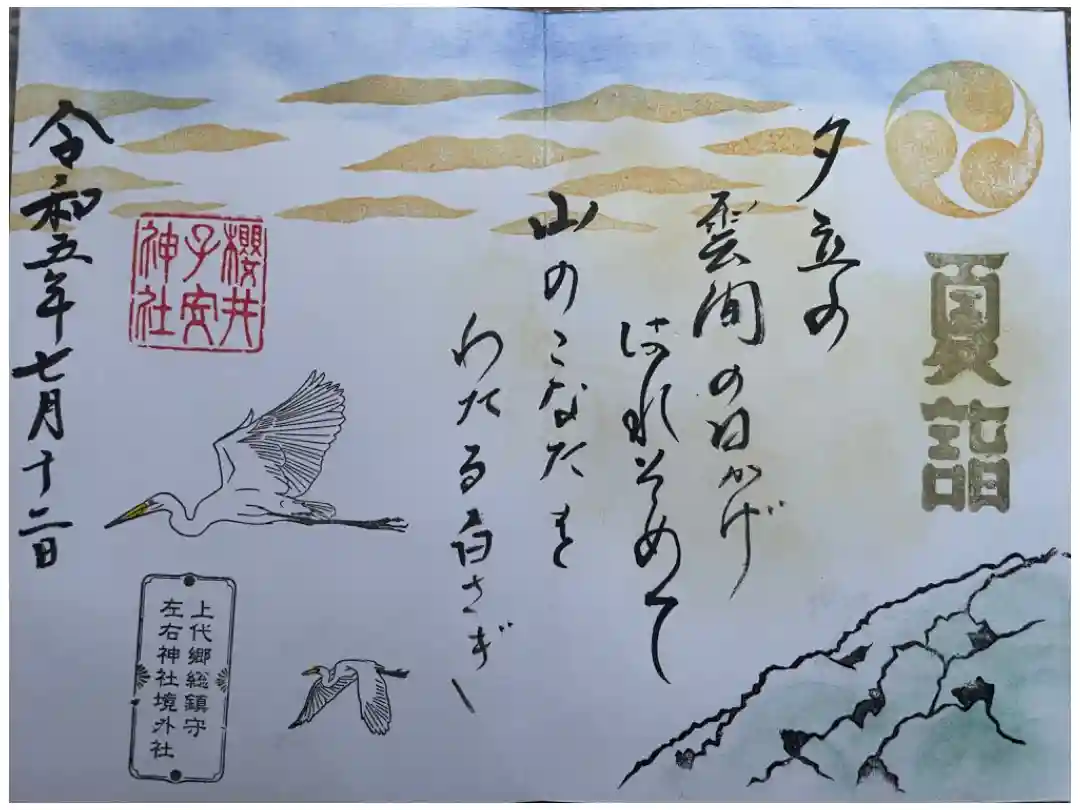 夏詣
夕立の
雲間の日かげ
はれそめて
山のこなたを
わたる白さぎ
櫻井
子安
神社
上代郷総鎮守
左右神社境外社
令和五年七月十二日